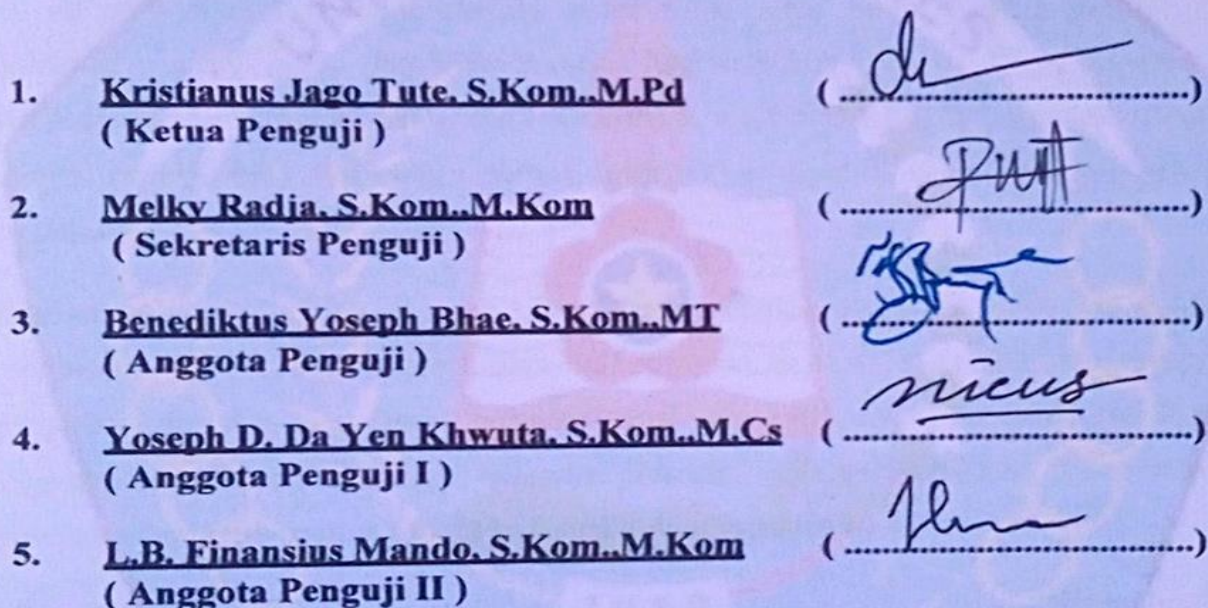 1. Kristianus Jago Tute, S.Kom.,M.Pd (..............................)
( Ketua Penguji )
2. Melky Radja, S.Kom.,M.Kom (..............................)
( Sekretaris Penguji )
3. Benediktus Yoseph Bhae, S.Kom.,MT (..............................)
( Anggota Penguji )
4. Yoseph D. Da Yen Khwuta, S.Kom.,M.Cs (..............................)
( Anggota Penguji I )
5. L.B. Finansius Mando, S.Kom.,M.Kom (..............................)
( Anggota Penguji II )